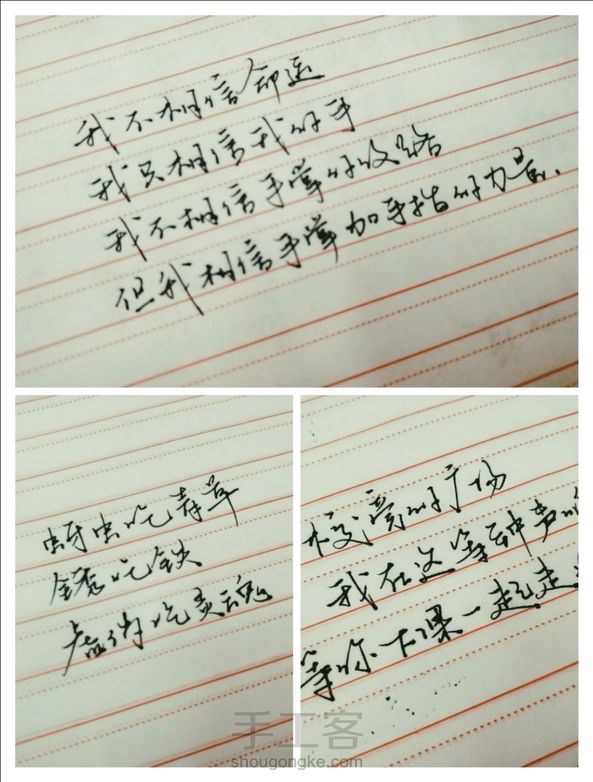 我不相信命运
我只相信我的手
我不相信手掌的纹路
但我相信手掌加手指的力量.
蚜虫吃青草
锈吃铁
虚伪吃灵魂
校旁的广场
我在这等钟声
等你下课一起走
手工客
shougongke.com